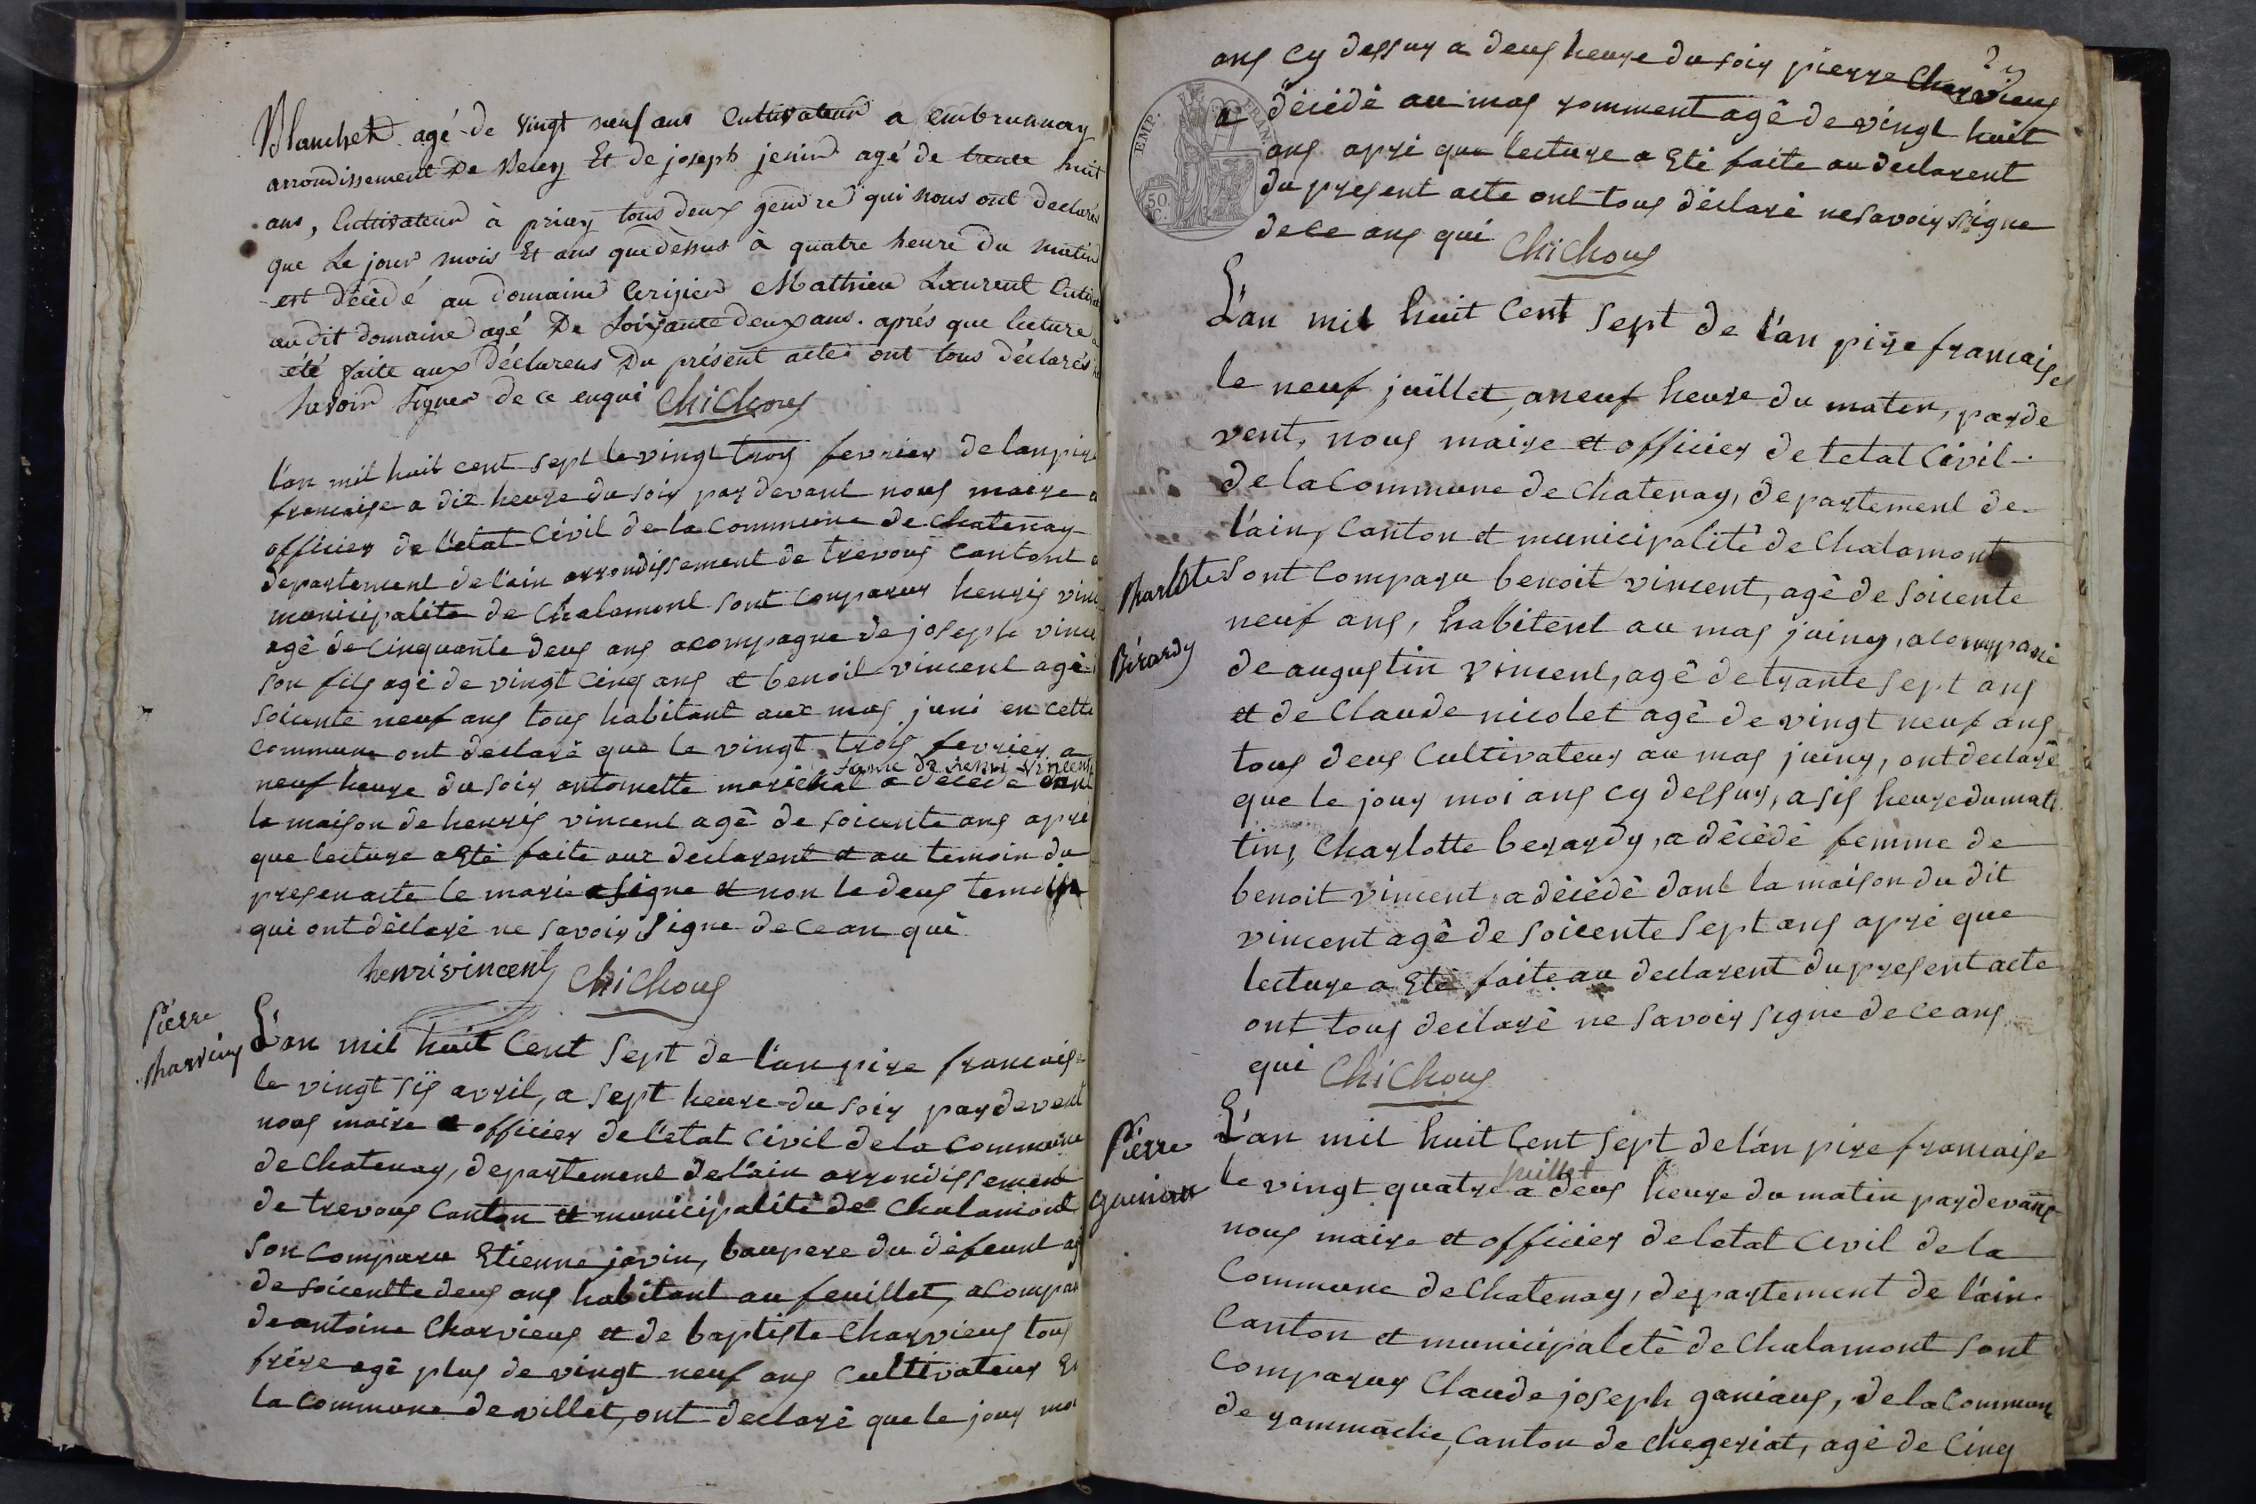 Blanchet agé de vingt neuf ans Cultivateur a
arrondissement De Et de joseph agé de trente huit
ans, Cultivateur à tous deux gendre qui nous ont declarés
que Le jour mois Et ans que dessus à quatre heure Du matin
est décédé au domaine Mathieu Laurent
au dit domaine agé De Soixante deux ans. aprés que lecture a
été faite aux déclarens Du présent acte ont tous déclarés
Savoir Signer de ce enqui Chichoux
l'an mil huit cent sept le vingt trois fevrier de lanpire
francaise a dix heure du soir par devant nous maire
officier de l'etat Civil de la Commune de chatenay
departement de l'ain arrondissement de trevoux Cantont
municipalite de Chalamont sont Comparus henris
agê de cinquante deux ans acompagne de joseph
son fils agé de vingt cinq ans et benoit vincent agê
soicente neuf ans tous habitant aux mas juni en cette
commune ont declarê que le vingt trois fevrier a
fame de henri vincent
neuf heure du soir antoinette a décéde dant
la maison de henris vincent agê de soicente ans apré
que lecture a Eté faite aux declarent et au temoin du
presen acte le marie a signe et non le deux
qui ont dêclaré ne savoir signe de ce an qui
henri vincent Chichoux
Pierre
L'an mil huit Cent sept de l'an pire francaise
le vingt six avril, a sept heure du soir pardevent
nous maire et officier de l'etat civil de la commune
de chatenay, departement de l'ain arrondissement
de trevoux Canton et municipalité de Chalamont
son comparu Etienne javin, baupere du défeunt
de soicentte deux ans habitant au feuillet,
de antoine Charvieux et de baptiste Charvieux tous
frére agê plus de vingt neuf ans Cultivateur
la Commune de villet, ont declaré que le jour
ans cy dessus a deux heure du soir pierre Charvieux
a dêcédé au mas romment agê de vingt huit
EMP. FRAN
50 C.
ans apré que lecture a Eté faite au declarent
du present acte ont tous déclaré ne savoir signe
de ce ans qui Chichoux
L'an mil huit cent sept de l'an pire francaise
le neuf juillet, a neuf heure du maten, par de
vent, nous maire et officier de letat Civil
de la commune de chatenay, departement de
l'ain, Canton et municipalité de Chalamont
sont comparu benoit vincent, agê de soicente
neuf ans, habitent au mas juiny,
Bérardy
de augustin vincent, agê de trante sept ans
et de Claude nicolet agê de vingt neuf ans
tous deux Cultivateur au mas juiny, ont declarê
que le jour moi ans cy dessus, a six heure du mat
tin, Charlotte berardy, a dêcêdê femme de
benoit vincent, a dêcédé dant la maison du dit
vincent agê de soicente sept ans apré que
lecture a Eté faite au declarent du present acte
ont tous declaré ne savoir signe de ce ans
qui Chichoux
Pierre
L'an mil huit Cent sept de l'an pire francaise
juillet
le vingt quatre a deux heure du matin pardevant
nous maire et officier de letat Civil de la
Commune de Chatenay, departement de l'ain
Canton et municipaleté de Chalamont sont
comparus Claude joseph ganiaux, de la Commune
de Canton de chegeriat, agê de Cinq